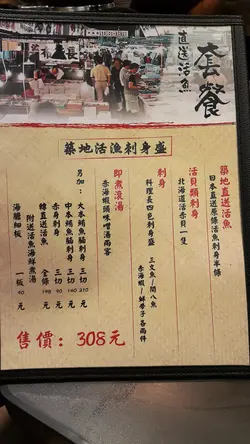 套餐
直送活魚
築地活漁刺身盛
築地直送活魚
日本直送原條活魚刺身半條
活貝類刺身
北海道活赤貝一隻
刺身
料理長四色刺身盛
三文魚/間八魚
赤海蝦/鮮帶子各兩件
即煮滾湯
赤海蝦頭味噌湯兩客
另加:
大本鮪魚腩刺身 三切 210元
中本鮪魚腩刺身 三切 160元
赤身刺身 三切 90元
韓直送活魚 全條 198元
附送活魚海鮮煮湯
海膽細板 一板 40元
售價: 308元